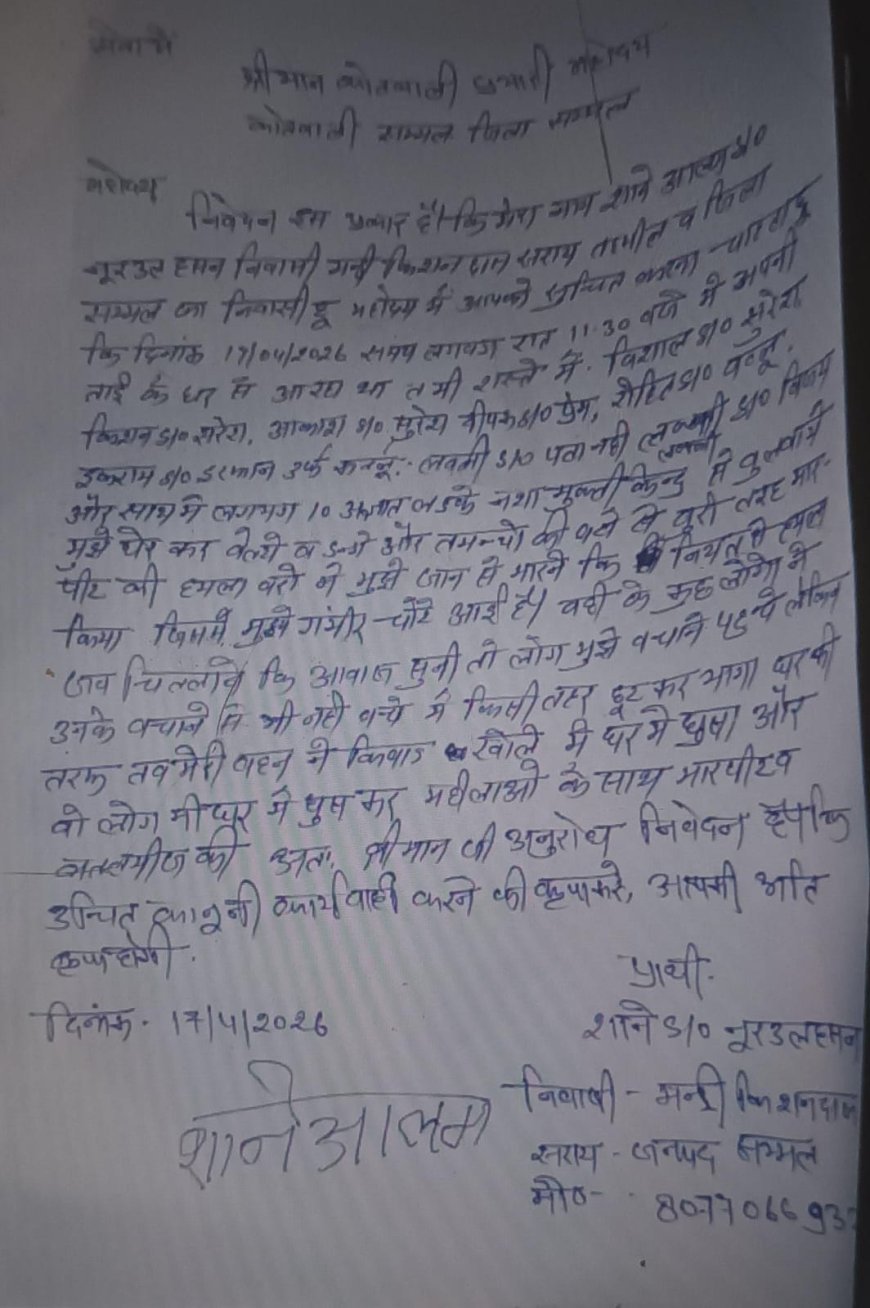 सेवामे
श्रीमान कोतवाली प्रभारी महोदय
कोतवाली सम्भल जिला सम्भल
महोदय
निवेदन इस प्रकार है। कि मेरा नाम शाने आलम S/o
नूरउल हसन निवासी मन्डी किशन दास सराय तहसील व जिला
सम्भल का निवासी हू महोदय मैं आपको सुचित करना चाहता हू
कि दिनांक 17/04/2026 समय लगभग रात 11:30 बजे मे अपनी
ताई के घर से आ रहा था तभी रास्ते में. विशाल S/o सुरेश,
किशन S/o सुरेश, आकाश S/o सुरेश दीपक S/o प्रेम, रोहित S/o
इकराम S/o इरफान उर्फ लक्की S/o पता नही लक्की S/o विजय
और साथ मे लगभग 10 लडके नशा मुक्ती केन्द्र से बुलवाये
मुझे घेर कर बेल्टो व डन्डो और तमन्चो की बटो से बुरी तरह मार-
पीट की हमला वरो ने मुझे जान से मारने कि नियत से हमला
किया जिसमें मुझे गंभीर चोटे आई है। वही के कुछ लोगो ने
जब चिल्लाने कि आवाज सुनी तो लोग मुझे बचाने पहुचे लेकिन
उनके बचाने से भी नही बचे मैं किसी तरह छूट कर भागा घर की
तरफ तब मेरी बहन ने किवाड खोले मै घर मे घुसा और
वो लोग भी घर मे घुस कर महीलाओ के साथ मारपीट व
बतत्मीज की अता. श्रीमान जी अनुरोध निवेदन है कि
उचित कानूनी कार्यवाही करने की कृपा करे, आपकी अति
कृपा होगी.
प्राथी.
दिनांक - 17/4/2026
शाने S/o नूरउलहसन
निवासी - मन्डी किशनदास
शाने आलम
सराय - जनपद सम्भल
मो० - 807706693